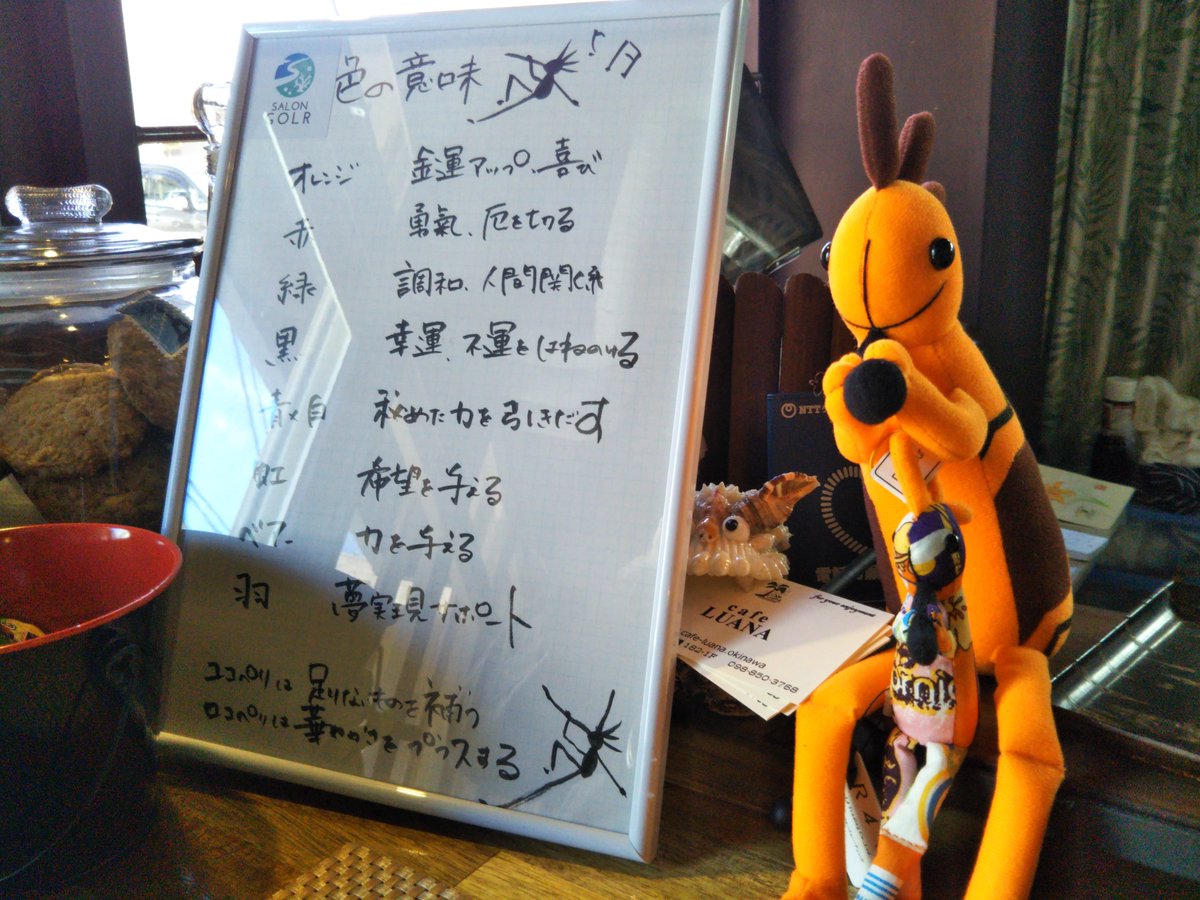 SALON
GOLR
色の意味 5月
オレンジ 金運アップ、喜び
赤 勇氣、厄を切る
緑 調和、人間関係
黒 幸運、不運をはねのける
秘めた力を引きだす
虹 希望を与える
ベアー 力を与える
羽 夢実現サポート
ユコペリは 足りないものを補う
ロコペリは 華やかさをプラスする
NTT
for your enjoyment
cafe
LUANA
cafe-luana.okinawa
182-1F
098-850-3768